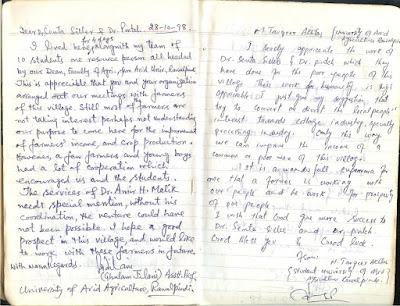 Dear Dr, Senta Siller & Dr. Pintel. 23-10-98.
for 4 days
I lived here alongwith my team of
10 students one resource person all headed
by our Dean, Faculty of Agri, from Arid Univ, Rawalpindi
This is appreciable that you and your organisation
arranged out our meetings with farmers
of this village. Still most of farmers are
not taking interest perhaps not understanding
our purpose to come here for the improvement
of farmers' income, and crop production.
However, a few farmers and young boys
had a lot of cooperation which
encouraged us and the students.
The services of Dr. Amir H. Malik
need special mention, without his
coordination, the venture could have
not been possible. I hope a good
prospect in this village, and would like
to work with these farmers in future.
With warm regards.
(Ghulam Jilani) Asstt. Prof.
University of Arid Agriculture, Rawalpindi
M. Tanveer Akhtar (University of Arid
Agriculture Rawalpindi)
I really appreciate the work of
Dr. Senta Siller and Dr. pintch which they
have done for the poor people of this
village. Their work for humanity is highly
appreciable. I just give my suggestion that
try to convert or divert the local people's
interest towards cottage industry, specially
processing industry. Only this way
we can improve the income of a
common or poor men of this village.
It is a wonderful experience for
me that a foreigner is working with
our people and he work for prosperity
of our people.
I wish that God give more success to
Dr. Senta Siller and Dr. pintch
God bless you & Good luck.
Yours
M. Tanveer Akhtar
(Student University of Arid
Agriculture Rawalpindi)